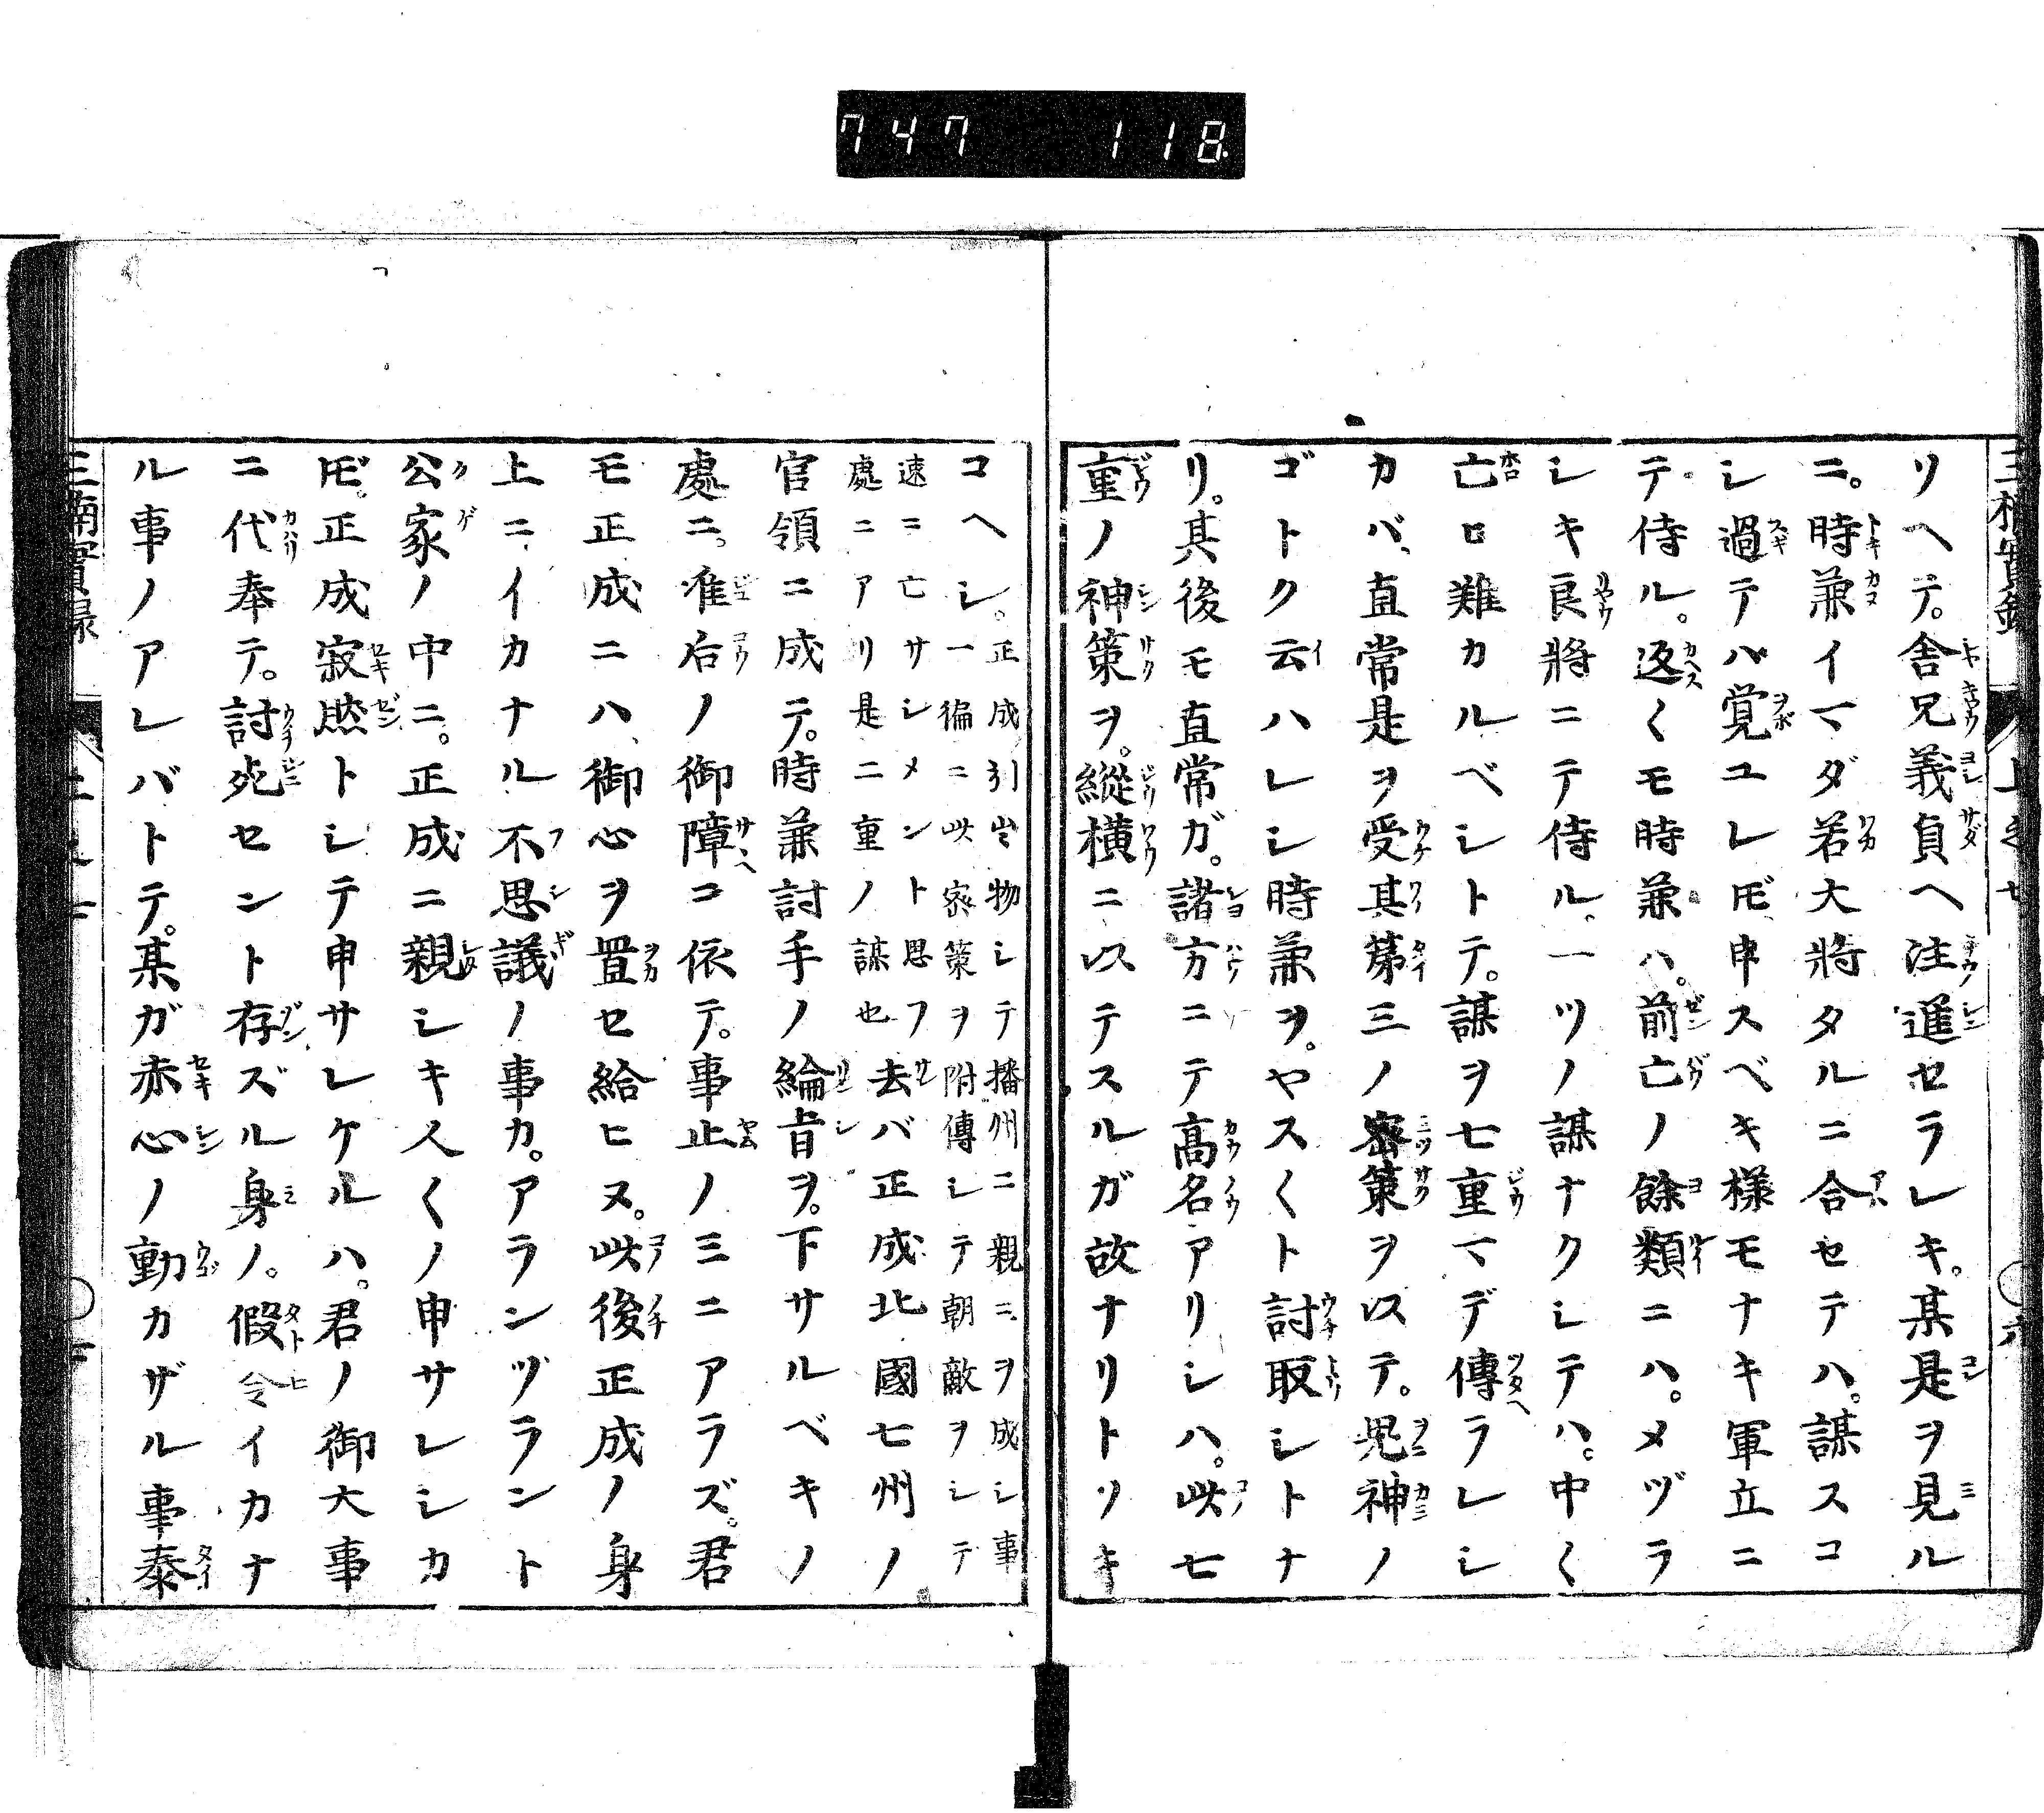 747 118
リヘテ。舎兄義貞ヘ注進セラレキ。某是ヲ見ル
ニ。時兼イマダ若大將タルニ合セテハ。謀スコ
シ過テハ覚ユレ𪜈、申スベキ様モナキ軍立ニ
テ侍ル。返〱モ時兼ハ。前亡ノ餘類ニハ。メヅラ
シキ良將ニテ侍ル。一ツノ謀ナクシテハ。中〱
亡ロ難カルベシトテ。謀ヲ七重マデ傳ラレシ
カバ、直常是ヲ受其第三ノ密策ヲ以テ。鬼神ノ
ゴトク云ハレシ時兼ヲ。ヤス〱ト討取シトナ
リ。其後モ直常ガ。諸方ニテ高名アリシハ。此七
重ノ神策ヲ。縱横ニ以テスルガ故ナリトソキ
コヘシ。正成引出物シテ播州ニ親ミヲ成シ事
一徧ニ此密策ヲ附傳シテ朝敵ヲシテ
速ニ亡サシメント思フ
處ニアリ是二重ノ謀也去バ正成北國七州ノ
官領ニ成テ。時兼討手ノ綸旨ヲ。下サルベキノ
處ニ。准后ノ御障コ依テ。事止ノミニアラズ。君
モ正成ニハ、御心ヲ置セ給ヒヌ。此後正成ノ身
上ニイカナル不思議ノ事カ。アランヅラント
公家ノ中ニ。正成ニ親シキ人〱ノ申サレシカ
𪜈。正成寂然トシテ申サレケルハ。君ノ御大事
ニ代奉テ。討死セント存ズル身ノ。假令イカナ
ル事ノアレバトテ。某ガ赤心ノ動カザル事泰